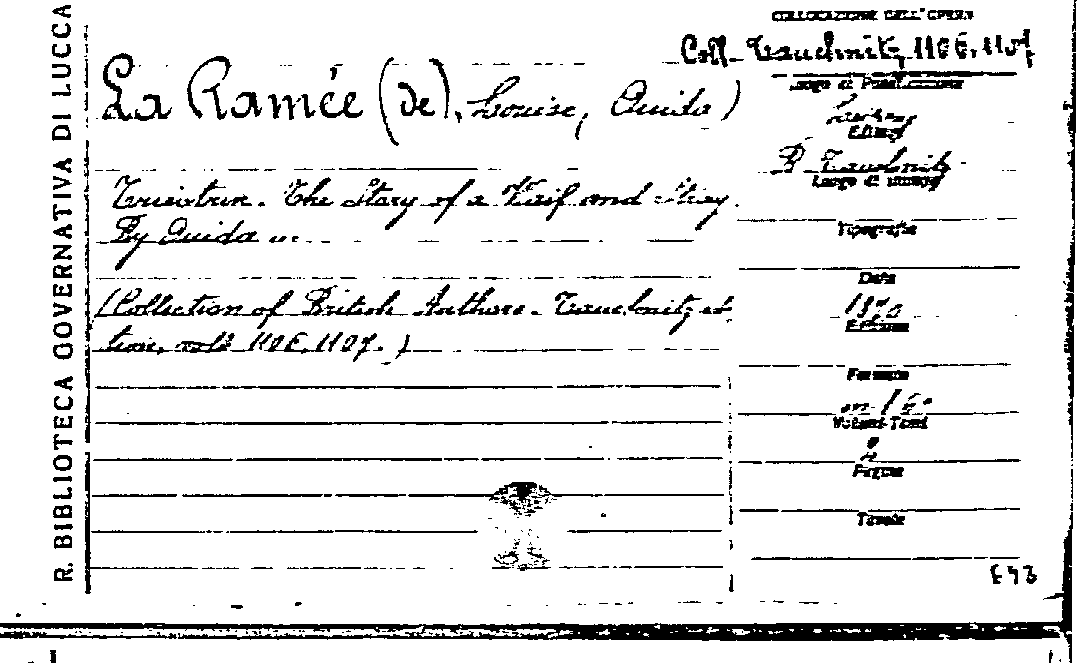 R. BIBLIOTECA GOVERNATIVA DI LUCCA
COLLOCAZIONE DELL'OPERA
Coll. Tauchnitz, 1106, 1107
La Ramée (de), Louise, Ouida)
Tricotrin. The Story of a Waif and Stray.
By Ouida ...
(Collection of British Authors. Tauchnitz edi-
tion, vols 1106, 1107.)
Luogo di Pubblicazione
Editore
B. Tauchnitz
Luogo di stampa
Tipografia
Data
1870
Edizione
Formato
in-16°
Volumi-Tomi
2
Pagine
Tavole